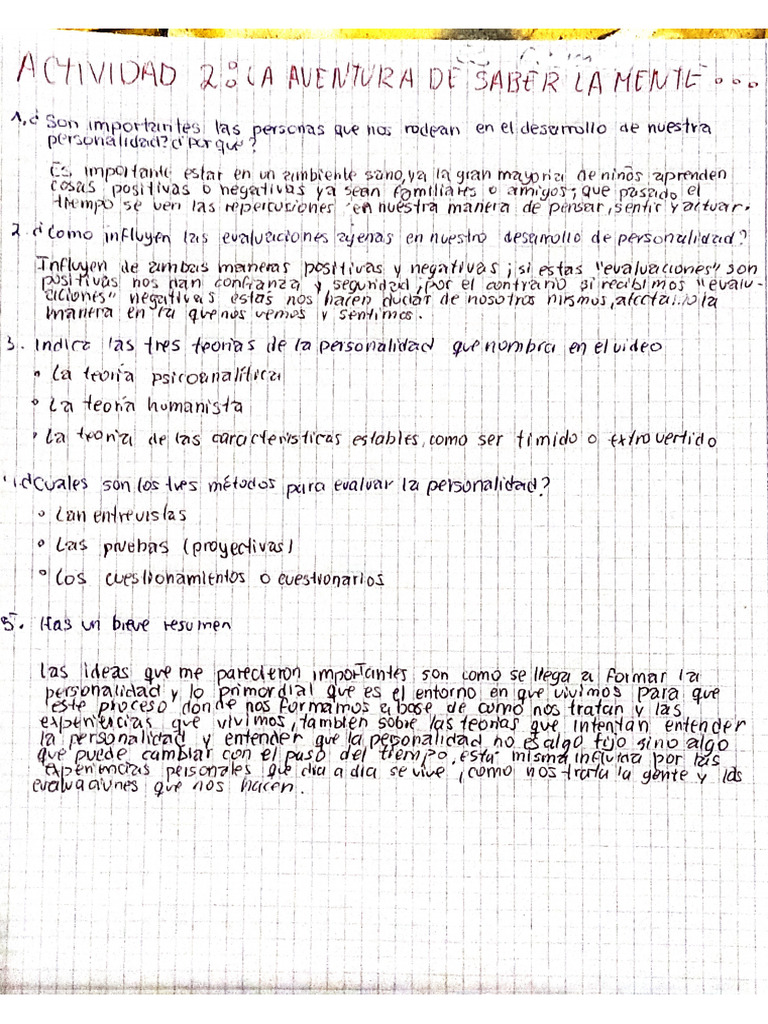 ACTIVIDAD 2: LA AVENTURA DE SABER LA MENTE...
1. ¿Son importantes las personas que nos rodean en el desarrollo de nuestra
personalidad? ¿Por qué?
Es importante estar en un ambiente sano, ya la gran mayoria de niños aprenden
cosas positivas o negativas ya sean familiares o amigos; que pasado el
tiempo se ven las repercusiones en nuestra manera de pensar, sentir y actuar.
2. ¿Como influyen las evaluaciones ajenas en nuestro desarrollo de personalidad?
Influyen de ambas maneras positivas y negativas; si estas "evaluaciones" son
positivas nos dan confianza y seguridad, por el contrario si recibimos "evalu-
aciones" negativas estas nos hacen dudar de nosotros mismos, la
manera en la que nos vemos y sentimos.
3. Indica las tres teorias de la personalidad que nombra en el video
• La teoría psicoanalítica
• La teoría humanista
• La teoria de las caracteristicas estables, como ser timido o extrovertido
¿Cuales son los tres métodos para evaluar la personalidad?
• Lan entrevistas
• Las pruebas (proyectivas)
• Los cuestionamientos o cuestionarios
5. Has un breve resumen
Las ideas que me parecieron importantes son como se llega a formar la
personalidad y lo primordial que es el entorno en que vivimos para que
este proceso donde nos formamos a base de como nos tratan y las
experiencias que vivimos, tambien sobre las teorias que intentan entender
la personalidad y entender que la personalidad no es algo fijo sino algo
que puede cambiar con el paso del tiempo, esta misma influida por las
experiencias personales que dia a dia se vive, como nos trata la gente y las
evaluaciones que nos hacen.